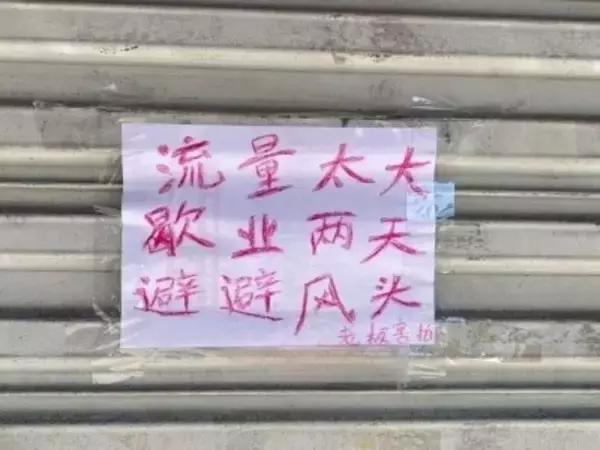 流量太大
歇业两天
避避风头
老板害怕